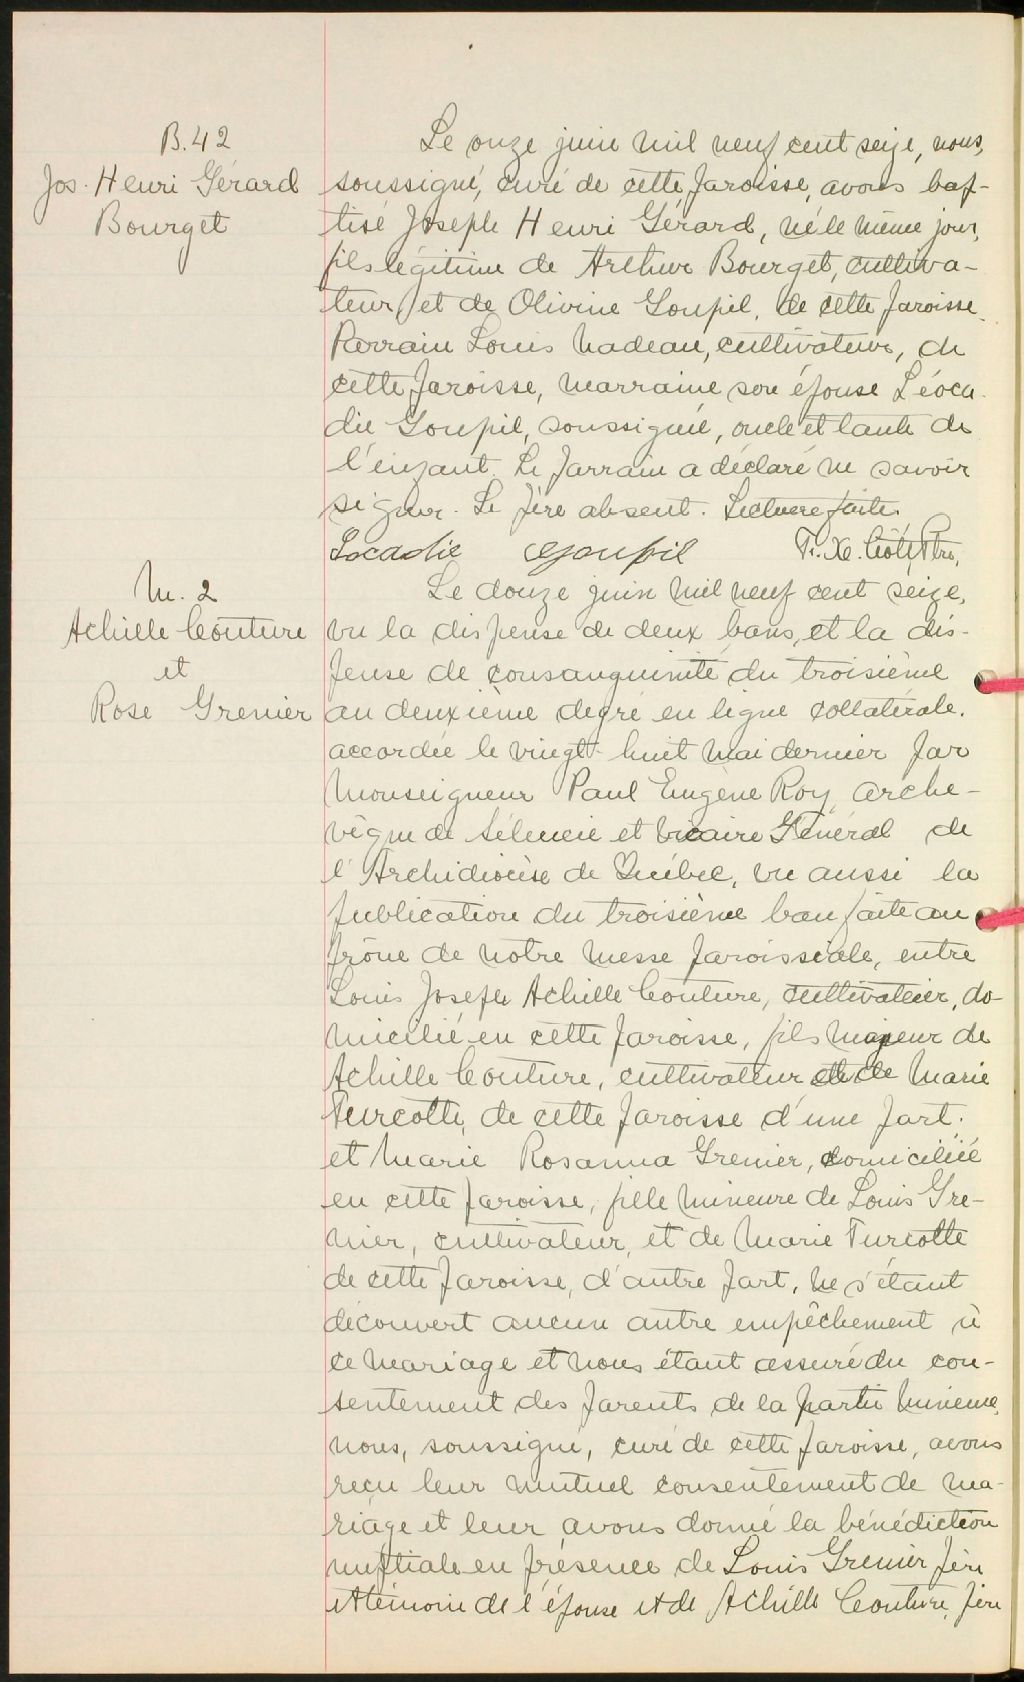 B. 42
Jos. Henri Gérard
Bourget
Le onze juin mil neuf cent seize, nous,
soussigné, curé de cette paroisse, avons bap-
tisé Joseph Henri Gérard, né le même jour,
fils légitime de Arthur Bourget, cultiva-
teur, et de Olivine Goupil, de cette paroisse.
Parrain Louis Nadeau, cultivateur, de
cette paroisse, marraine son épouse Léoca-
die Goupil, soussignée, oncle et tante de
l'enfant. Le parrain a déclaré ne savoir
signer. Le père absent. Lecture faite.
Locadie Goupil F. X. Côté, Ptre,
M. 2
Achille Couture
et
Rose Grenier
Le douze juin mil neuf cent seize,
vu la dispense de deux bans, et la dis-
pense de consanguinité du troisième
au deuxième degré en ligne collatérale,
accordée le vingt-huit mai dernier par
Monseigneur Paul Eugène Roy, arche-
vêque de Séleucie et Vicaire Général de
l'Archidiocèse de Québec, vu aussi la
publication du troisième ban faite au
prône de notre messe paroissiale, entre
Louis Joseph Achille Couture, cultivateur, do-
micilié en cette paroisse, fils majeur de
Achille Couture, cultivateur et de Marie
Turcotte, de cette paroisse d'une part;
et Marie Rosanna Grenier, domiciliée
en cette paroisse, fille mineure de Louis Gre-
nier, cultivateur, et de Marie Turcotte
de cette paroisse, d'autre part, ne s'étant
découvert aucun autre empêchement à
ce mariage et nous étant assuré du con-
sentement des parents de la partie mineure,
nous, soussigné, curé de cette paroisse, avons
reçu leur mutuel consentement de ma-
riage et leur avons donné la bénédiction
nuptiale en présence de Louis Grenier père
et témoin de l'épouse et de Achille Couture, père